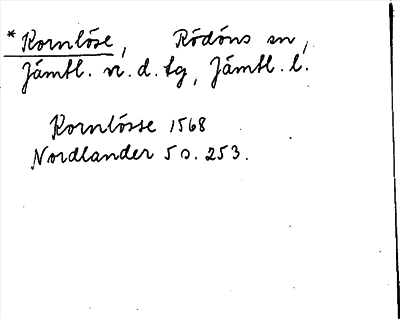 *Kornlöse, Rödöns sn,
Jämtl. n. d. tg, Jämtl. l.
Kornlösse 1568
Nordlander 5 s. 253.